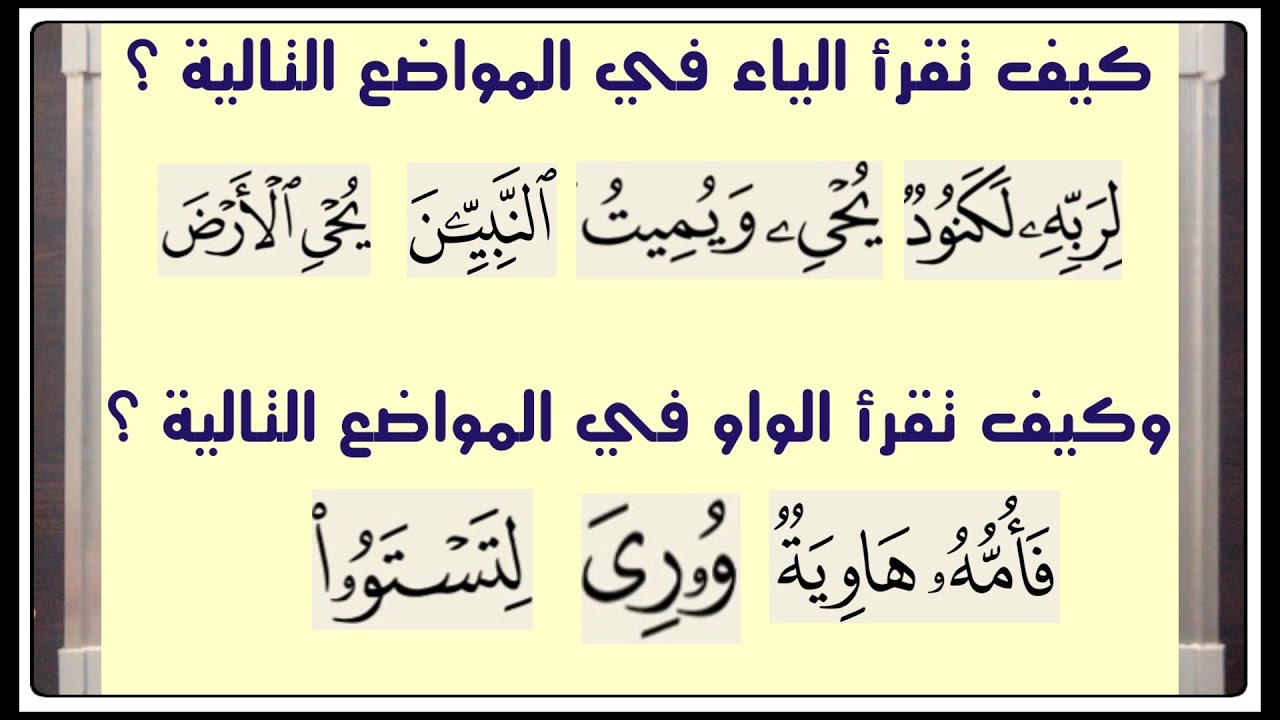 كيف تقرأ الياء في المواضع التالية ؟
لِرَبِّهِۦ لَكَنُودٌۭ يُحْىِۦ وَيُمِيتُ ٱلنَّبِيِّـۧنَ يُحْىِ ٱلْأَرْضَ
وكيف تقرأ الواو في المواضع التالية ؟
فَأُمُّهُۥ هَاوِيَةٌۭ وُۥرِىَ لِتَسْتَوُۥا۟